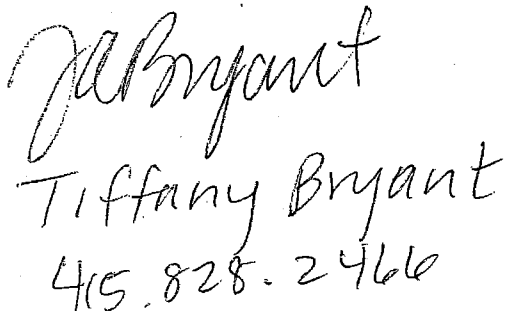 TABryant
Tiffany Bryant
415.828.2466